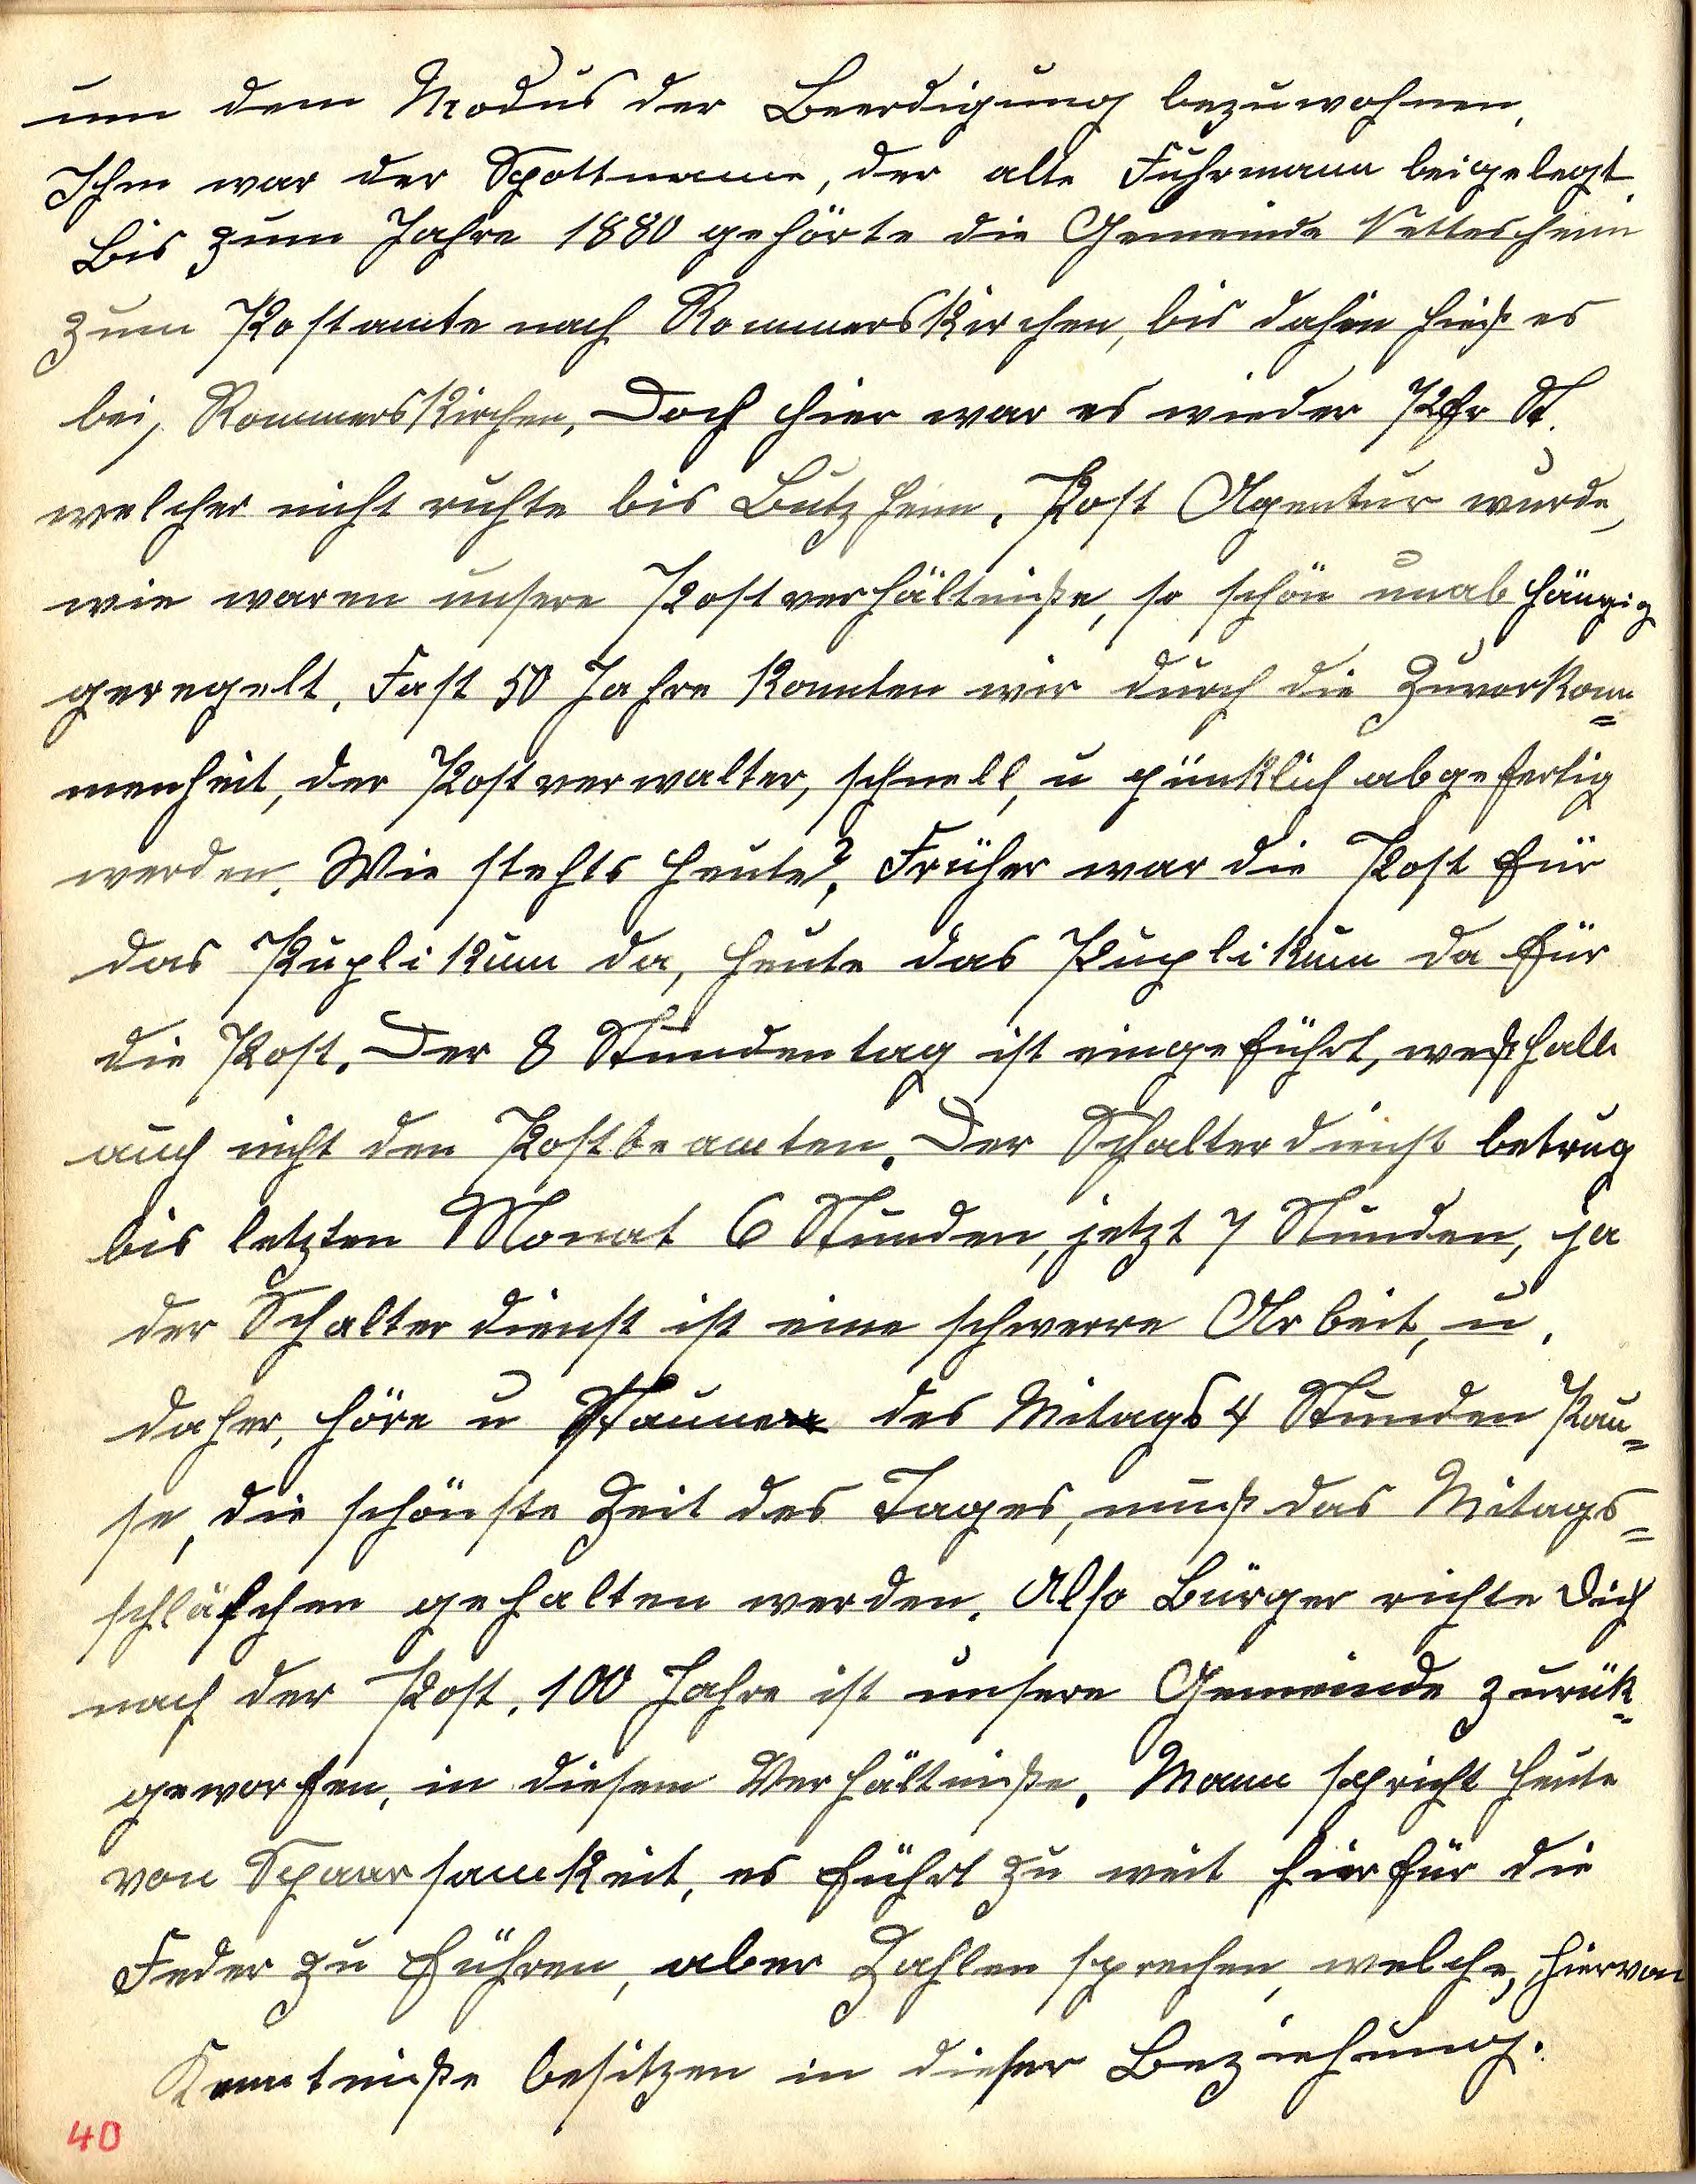 um dem Modus der Beerdigung bezuwohnen.
Ihm war der Spottname, der alte Fuhrmann beigelegt.
Bis zum Jahre 1880 gehörte die Gemeinde Nettesheim
zum Postamte nach Rommerskirchen, bis dahin hieß es
bei, Rommerskirchen. Doch hier war es wieder Pfr St.
welcher nicht ruhte bis Butzheim. Post Agentur wurde,
wie waren unsere Postverhältniße, so schön unabhängig
geregelt. Fast 50 Jahre konnten wir durch die Zuvorkom=
menheit, der Postverwalter, schnell, u pünklich abgefertig
werden. Wie stehts heute?. Früher war die Post für
das Puplikum da, heute das Puplikum da für
die Post. Der 8 Stundentag ist eingeführt, weßhalb
auch nicht den Postbeamten. Der Schalterdienst betrug
bis letzten Monat 6 Stunden, jetzt 7 Stunden, ja
der Schalterdienst ist eine schwerre Arbeit, u.
daher, höre u Staune des Mitags 4 Stunden Pau=
se, die schönste Zeit des Tages, muß das Mitags=
schläfchen gehalten werden. Also Bürger richte Dich
nach der Post. 100 Jahre ist unsere Gemeinde zurük=
geworfen, in diesem Verhältniße. Mann spricht heute
von Spaarsamkeit, es führt zu weit hierfür die
Feder zu führen, aber Zahlen sprechen, welche, hiervon
Kenntniße besitzen in dieser Beziehung.
40